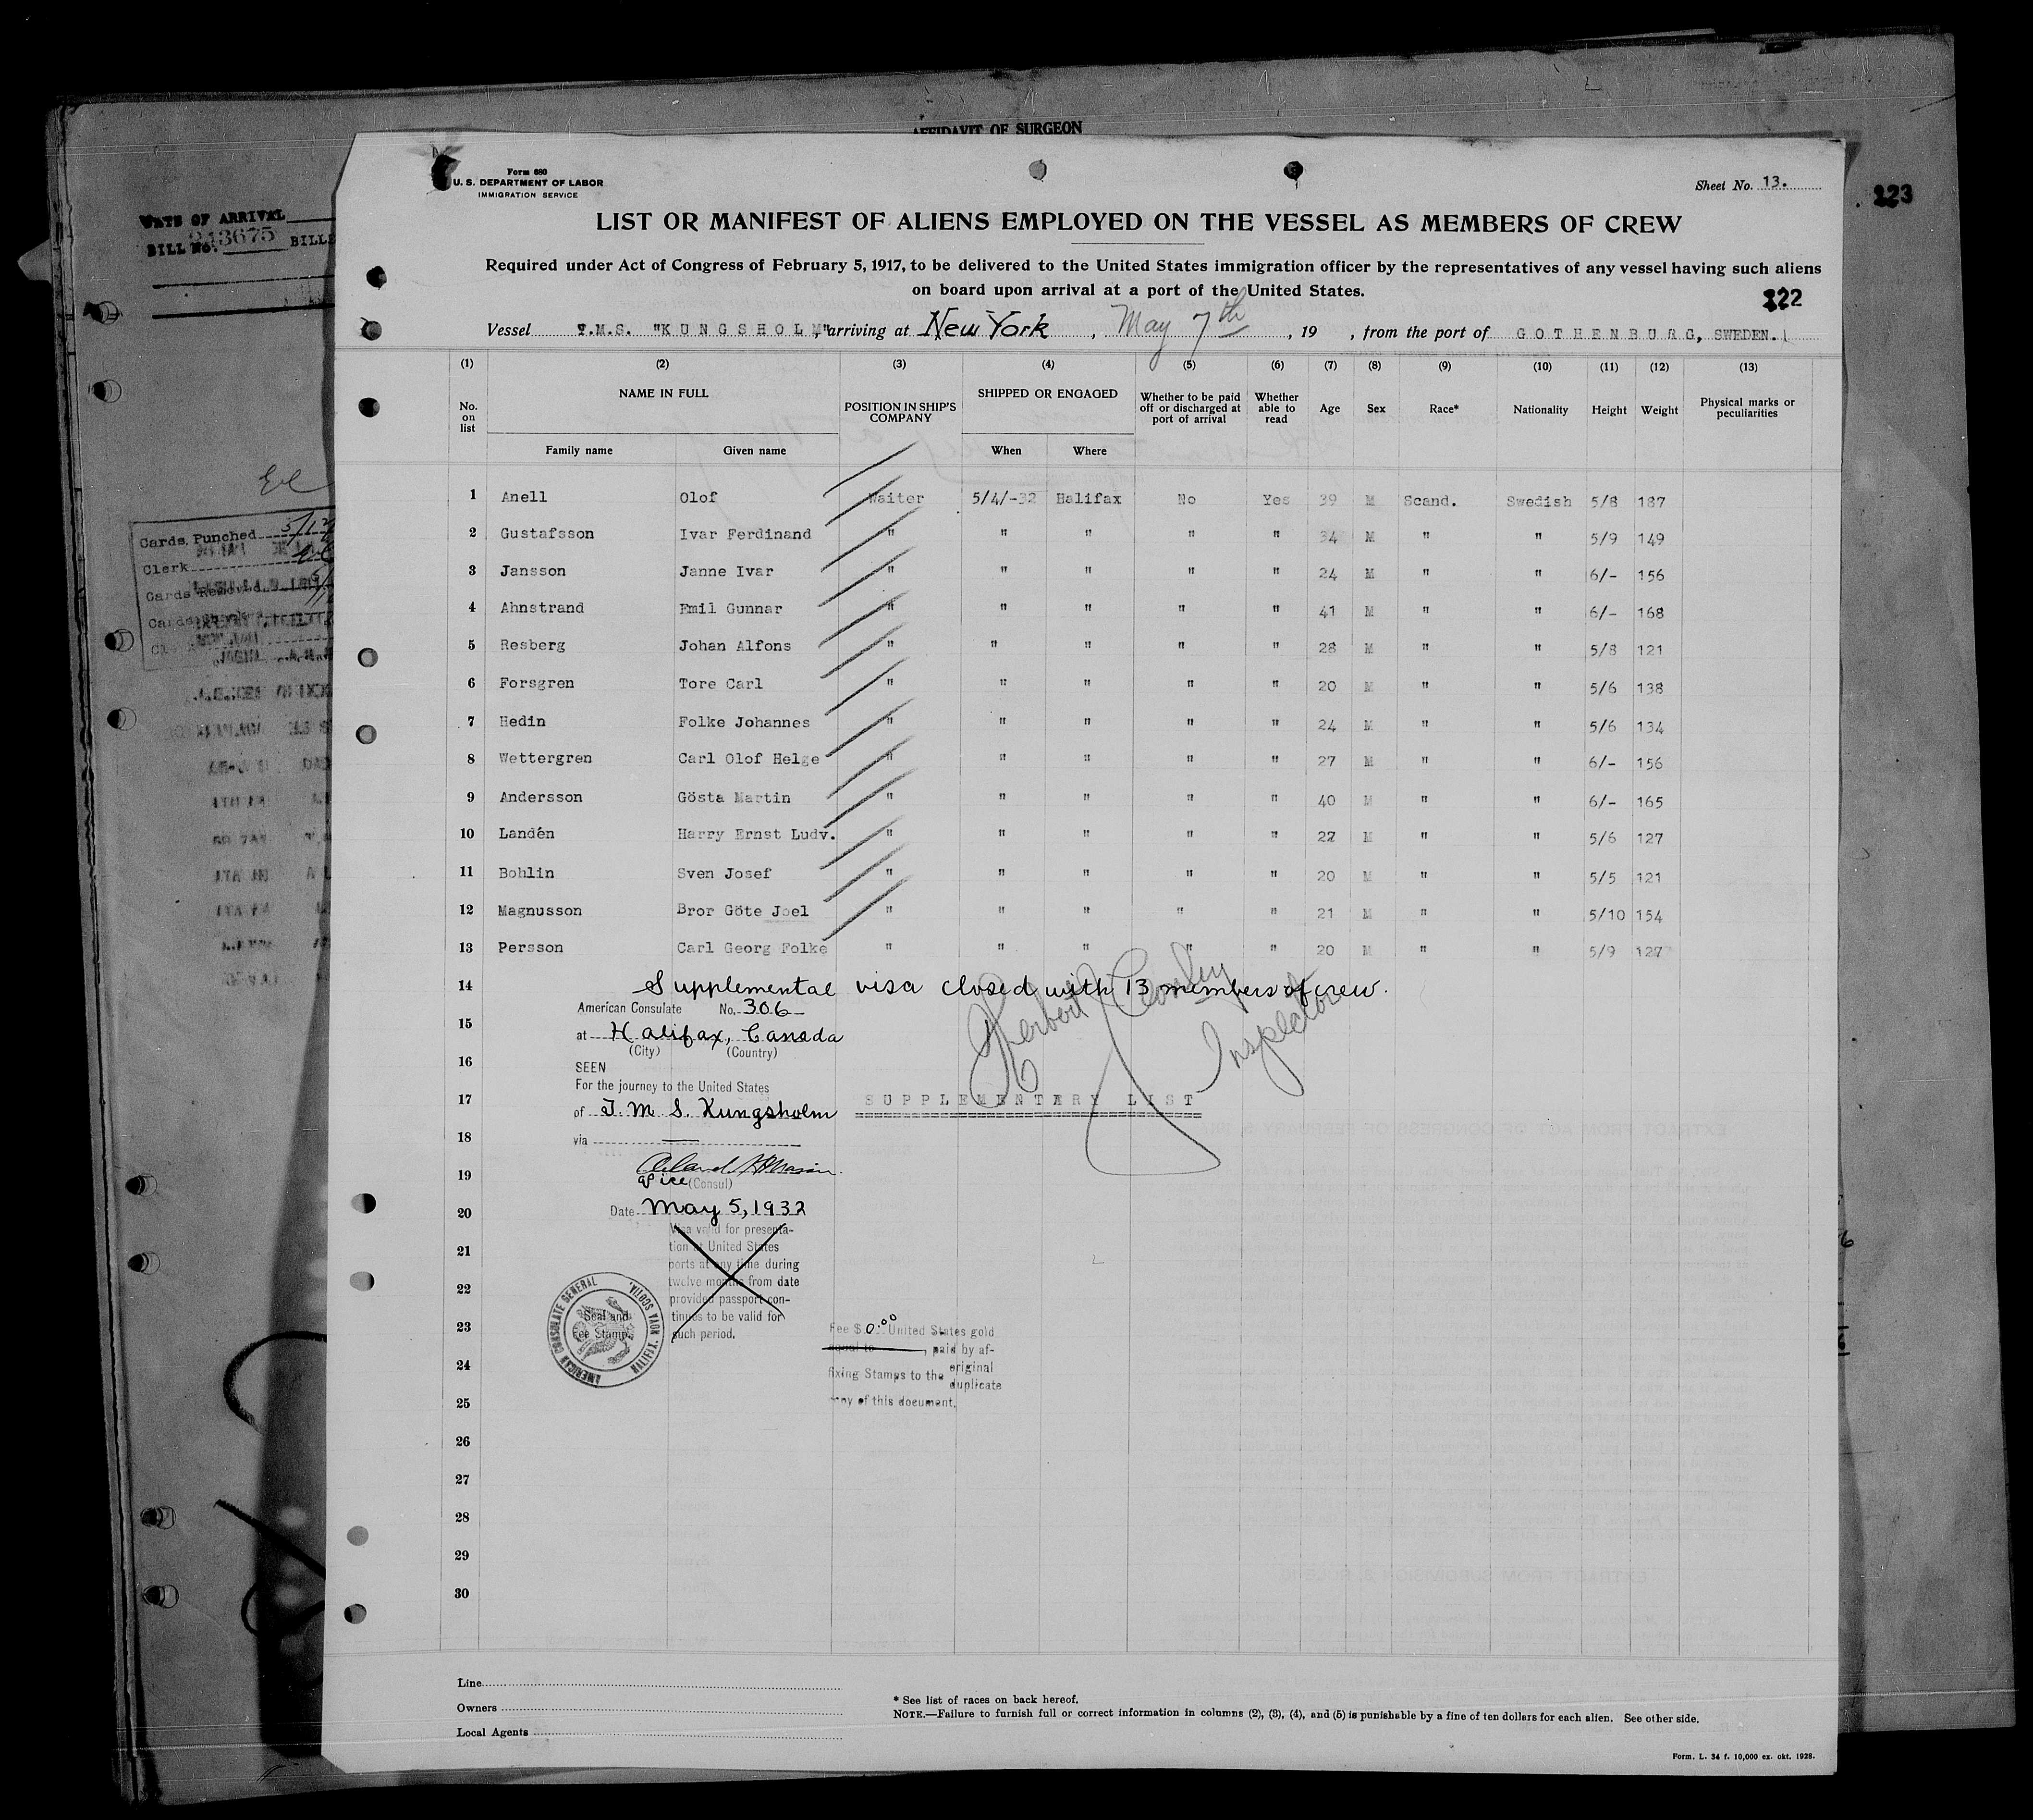 AFFIDAVIT OF SURGEON
Form 680
U. S. DEPARTMENT OF LABOR
IMMIGRATION SERVICE
Sheet No. 13.
123
DATE OF ARRIVAL
BILL No. 243675 BILLE
LIST OR MANIFEST OF ALIENS EMPLOYED ON THE VESSEL AS MEMBERS OF CREW
Required under Act of Congress of February 5, 1917, to be delivered to the United States immigration officer by the representatives of any vessel having such aliens
on board upon arrival at a port of the United States.
122
Vessel T.M.S. "KUNGSHOLM", arriving at New York, May 7th, 19 , from the port of GOTHENBURG, SWEDEN.
(1) (2) (3) (4) (5) (6) (7) (8) (9) (10) (11) (12) (13)
No. on list NAME IN FULL POSITION IN SHIP'S COMPANY SHIPPED OR ENGAGED Whether to be paid off or discharged at port of arrival Whether able to read Age Sex Race* Nationality Height Weight Physical marks or peculiarities
Family name Given name When Where
1 Anell Olof Waiter 5/4/-32 Halifax No Yes 39 M Scand. Swedish 5/8 187
2 Gustafsson Ivar Ferdinand " " " " " 34 M " " 5/9 149
3 Jansson Janne Ivar " " " " " 24 M " " 6/- 156
4 Ahnstrand Emil Gunnar " " " " " 41 M " " 6/- 168
5 Resberg Johan Alfons " " " " " 28 M " " 5/8 121
6 Forsgren Tore Carl " " " " " 20 M " " 5/6 138
7 Hedin Folke Johannes " " " " " 24 M " " 5/6 134
8 Wettergren Carl Olof Helge " " " " " 27 M " " 6/- 156
9 Andersson Gösta Martin " " " " " 40 M " " 6/- 165
10 Landén Harry Ernst Ludv. " " " " " 22 M " " 5/6 127
11 Bohlin Sven Josef " " " " " 20 M " " 5/5 121
12 Magnusson Bror Göte Joel " " " " " 21 M " " 5/10 154
13 Persson Carl Georg Folke " " " " " 20 M " " 5/9 127
14 Supplemental visa closed with 13 members of crew.
American Consulate No. 306
15 at Halifax, Canada
(City) (Country)
Inspector
16 SEEN
For the journey to the United States
17 SUPPLEMENTARY LIST
of T. M. S. Kungsholm
18 via
19 Vice (Consul)
20 Date May 5, 1932
Visa valid for presenta-
21 tion at United States
ports at any time during
22 twelve months from date
provided passport con-
tinues to be valid for
such period.
AMERICAN CONSULATE GENERAL
HALIFAX, NOVA SCOTIA.
Seal and
Fee Stamp
23 Fee $ 0.00 United States gold
equal to , paid by af-
24 fixing Stamps to the original
duplicate
25 copy of this document.
26
27
28
29
30
Cards Punched
Clerk
Cards
Line
Owners
Local Agents
* See list of races on back hereof.
NOTE.—Failure to furnish full or correct information in columns (2), (3), (4), and (5) is punishable by a fine of ten dollars for each alien. See other side.
Form. L. 34 f. 10,000 ex. okt. 1928.